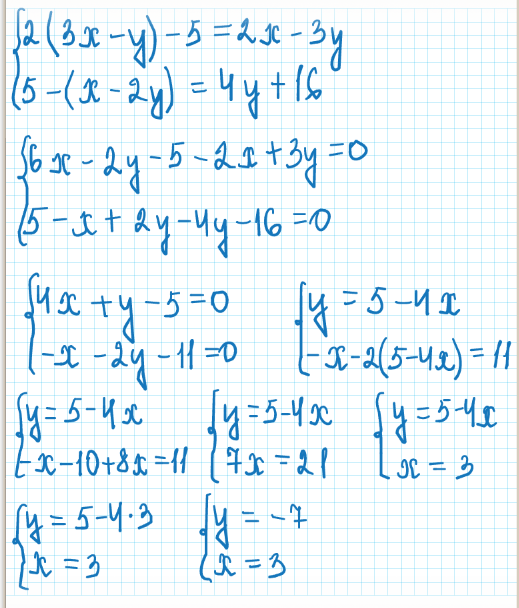 2(3x-y)-5=2x-3y
5-(x-2y)=4y+16
6x-2y-5-2x+3y=0
5-x+2y-4y-16=0
4x+y-5=0
-x-2y-11=0
y=5-4x
-x-2(5-4x)=11
y=5-4x
-x-10+8x=11
y=5-4x
7x=21
y=5-4x
x=3
y=5-4·3
x=3
y=-7
x=3